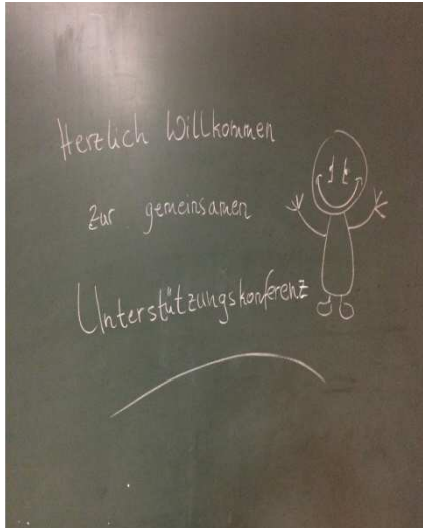 Herzlich Willkommen
zur gemeinsamen
Unterstützungskonferenz